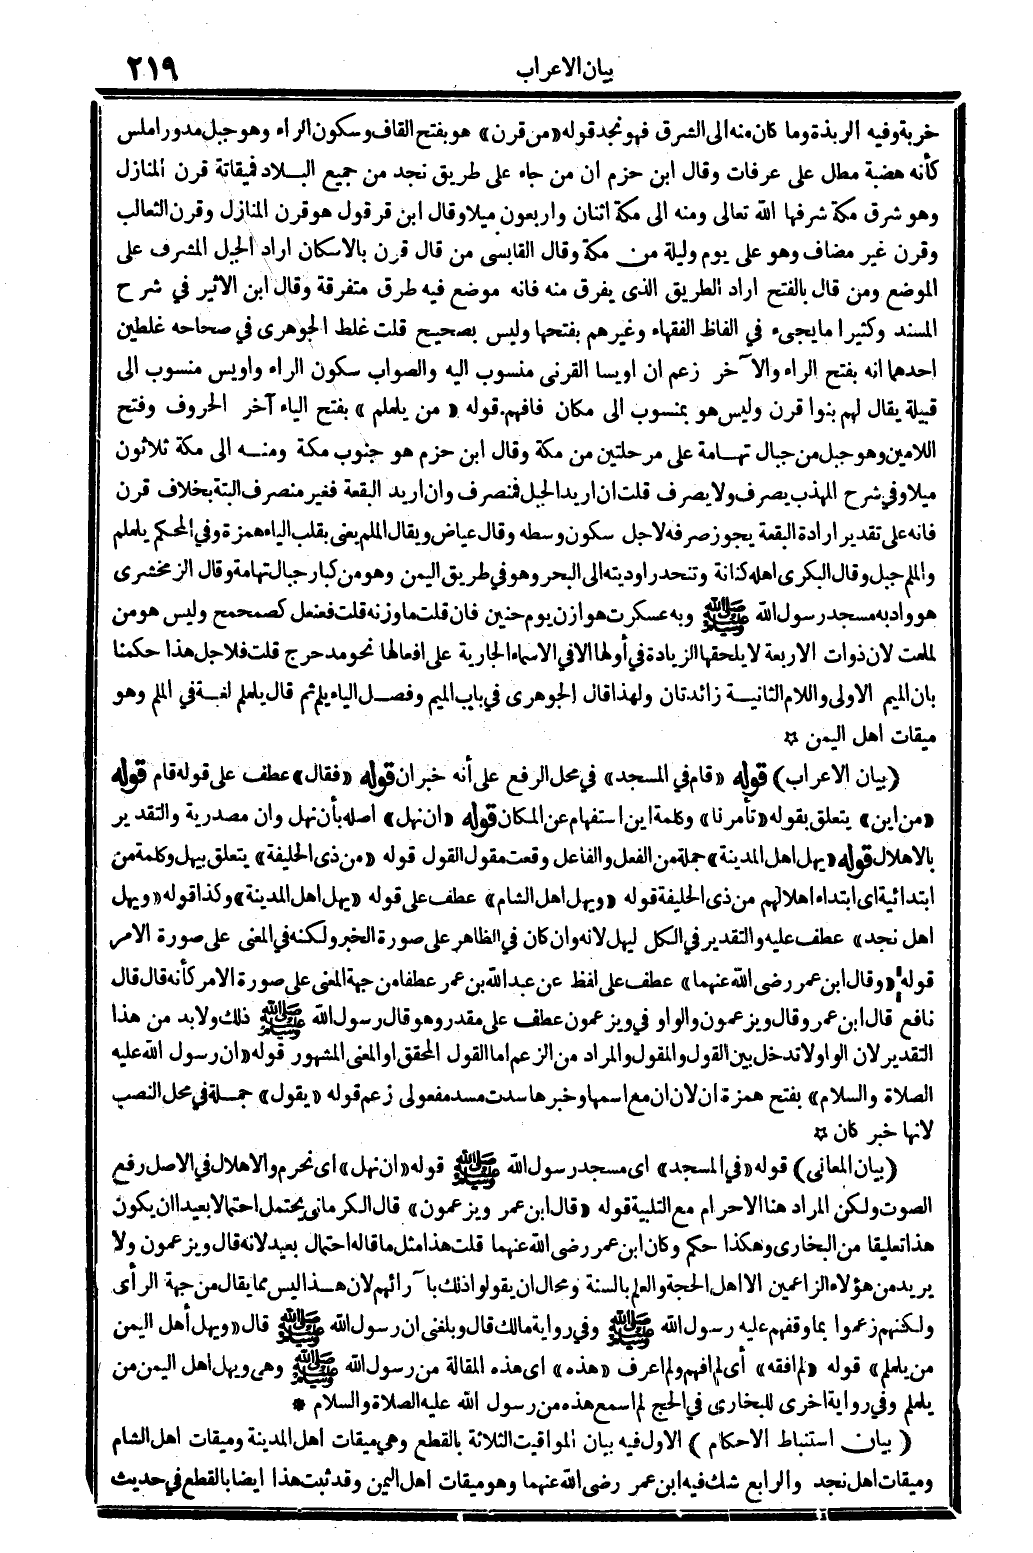 بيان الاعراب ٢١٩
خربة وفيه الربذة وما كان منه الى الشرق فهو نجد قوله «من قرن» هو بفتح القاف وسكون الراء وهو جبل مدور املس
كأنه هضبة مطل على عرفات وقال ابن حزم ان من جاء على طريق نجد من جميع البلاد فميقاتة قرن المنازل
وهو شرق مكة شرفها الله تعالى ومنه الى مكة اثنان واربعون ميلا وقال ابن قرقول هو قرن المنازل وقرن الثعالب
وقرن غير مضاف وهو على يوم وليلة من مكة وقال القابسى من قال قرن بالاسكان اراد الجبل المشرف على
الموضع ومن قال بالفتح اراد الطريق الذى يفرق منه فانه موضع فيه طرق متفرقة وقال ابن الاثير في شرح
المسند وكثيرا ما يجىء في الفاظ الفقهاء وغيرهم بفتحها وليس بصحيح قلت غلط الجوهرى في صحاحه غلطين
احدهما انه بفتح الراء والآخر زعم ان اويسا القرنى منسوب اليه والصواب سكون الراء واويس منسوب الى
قبيلة يقال لهم بنوا قرن وليس هو بمنسوب الى مكان فافهم. قوله «من يلملم» بفتح الياء آخر الحروف وفتح
اللامين وهو جبل من جبال تهامة على مرحلتين من مكة وقال ابن حزم هو جنوب مكة ومنه الى مكة ثلاثون
ميلا وفي شرح المهذب يصرف ولا يصرف قلت ان اريد الجبل فمنصرف وان اريد البقعة فغير منصرف البتة بخلاف قرن
فانه على تقدير ارادة البقعة يجوز صرفه لاجل سكون وسطه وقال عياض ويقال الملم يعنى بقلب الياء همزة وفي المحكم يلملم
والملم جبل وقال البكرى اهله كنانة وتنحدر اوديته الى البحر وهو في طريق اليمن وهو من كبار جبال تهامة وقال الزمخشرى
هو واد به مسجد رسول الله ﷺ وبه عسكرت هوازن يوم حنين فان قلت ما وزنه قلت فعنعل كصمحمح وليس هو من
لملمت لان ذوات الاربعة لا يلحقها الزيادة في أولها الا في الاسماء الجارية على افعالها نحو مدحرج قلت فلاجل هذا حكمنا
بان الميم الاولى واللام الثانية زائدتان ولهذا قال الجوهرى في باب الميم وفصل الياء يلم ثم قال يلملم لغة في الملم وهو
ميقات اهل اليمن ✩
(بيان الاعراب) قوله «قام في المسجد» في محل الرفع على أنه خبر ان قوله «فقال» عطف على قوله قام قوله
«من اين» يتعلق بقوله «تأمرنا» وكلمة اين استفهام عن المكان قوله «ان نهل» اصله بأن نهل وان مصدرية والتقدير
بالاهلال قوله «يهل اهل المدينة» جملة من الفعل والفاعل وقعت مقول القول قوله «من ذى الحليفة» يتعلق بيهل وكلمة من
ابتدائية اى ابتداء اهلالهم من ذى الحليفة قوله «ويهل اهل الشام» عطف على قوله «يهل اهل المدينة» وكذا قوله «ويهل
اهل نجد» عطف عليه والتقدير في الكل ليهل لانه وان كان في الظاهر على صورة الخبر ولكنه في المعنى على صورة الامر
قوله «وقال ابن عمر رضى الله عنهما» عطف على لفظ عن عبد الله بن عمر عطفا من جهة المعنى على صورة الامر كأنه قال قال
نافع قال ابن عمر وقال ويزعمون والواو في ويزعمون عطف على مقدر وهو قال رسول الله ﷺ ذلك ولا بد من هذا
التقدير لان الواو لا تدخل بين القول والمقول والمراد من الزعم اما القول المحقق او المعنى المشهور قوله «ان رسول الله عليه
الصلاة والسلام» بفتح همزة ان لان ان مع اسمها وخبرها سدت مسد مفعولى زعم قوله «يقول» جملة في محل النصب
لانها خبر كان ✩
(بيان المعانى) قوله «في المسجد» اى مسجد رسول الله ﷺ قوله «ان نهل» اى نحرم والاهلال في الاصل رفع
الصوت ولكن المراد هنا الاحرام مع التلبية قوله «قال ابن عمر ويزعمون» قال الكرمانى يحتمل احتمالا بعيدا ان يكون
هذا تعليقا من البخارى وهكذا حكم وكان ابن عمر رضى الله عنهما قلت هذا مثل ما قاله احتمال بعيد لانه قال ويزعمون ولا
يريد من هؤلاء الزاعمين الا اهل الحجة والعلم بالسنة ومحال ان يقولوا ذلك بآرائهم لان هذا ليس مما يقال من جهة الرأى
ولكنهم زعموا بما وقفهم عليه رسول الله ﷺ وفي رواية مالك قال وبلغنى ان رسول الله ﷺ قال «ويهل أهل اليمن
من يلملم» قوله «لم افقه» أى لم افهم ولم اعرف «هذه» اى هذه المقالة من رسول الله ﷺ وهى ويهل اهل اليمن من
يلملم وفي رواية اخرى للبخارى في الحج لم اسمع هذه من رسول الله عليه الصلاة والسلام *
(بيان استنباط الاحكام) الاول فيه بيان المواقيت الثلاثة بالقطع وهي ميقات اهل المدينة وميقات اهل الشام
وميقات اهل نجد والرابع شك فيه ابن عمر رضى الله عنهما وهو ميقات اهل اليمن وقد ثبت هذا ايضا بالقطع في حديث